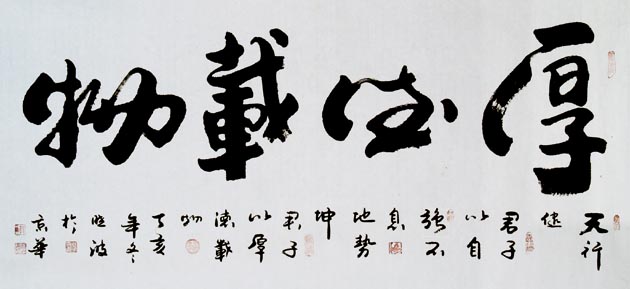 厚德載物
天行
健
君子
以自
強不
息
地勢
坤
君子
以厚
德載
物
丁亥
年冬
波
於
京華